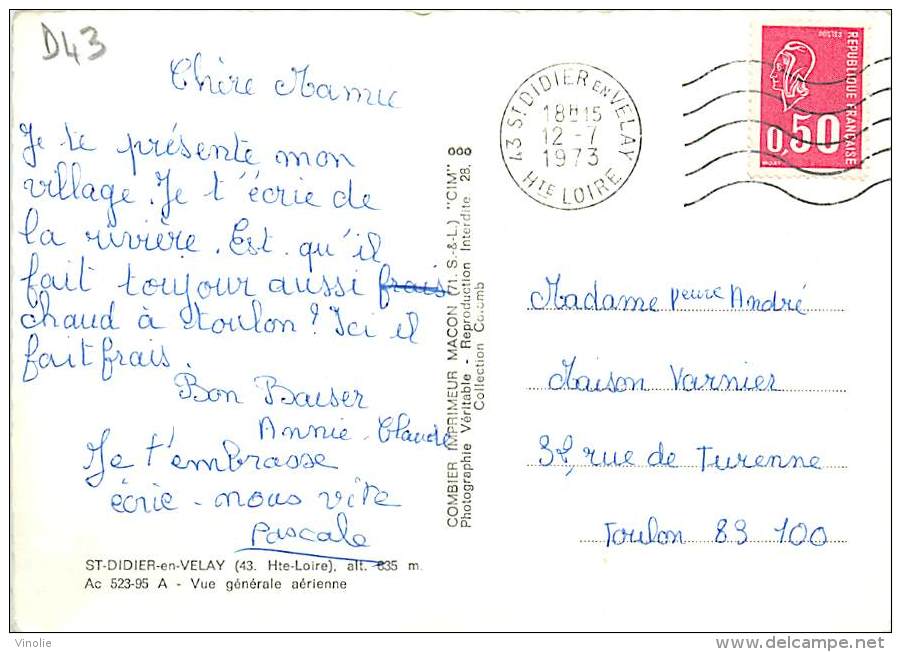 D43
Chère Mamie
Je te présente mon
village. Je t'écrie de
la rivière. Est. qu'il
fait toujour aussi frais
chaud à Toulon ? Ici il
fait frais.
Bon Baiser
Annie. Claude
Je t'embrasse
écrie-nous vite
Pascale
ST-DIDIER-en-VELAY (43. Hte-Loire), alt. 835 m.
Ac 523-95 A - Vue générale aérienne
000
COMBIER IMPRIMEUR MACON (71. S.-&-L.) "CIM"
Photographie Véritable - Reproduction Interdite 28.
Collection Colomb
43 ST DIDIER EN VELAY
18H15
12-7
1973
HTE LOIRE
POSTES
REPUBLIQUE FRANÇAISE
0,50
Madame André
Maison Varnier
rue de Turenne
Toulon 83 100
Vinolie
www.delcampe.net